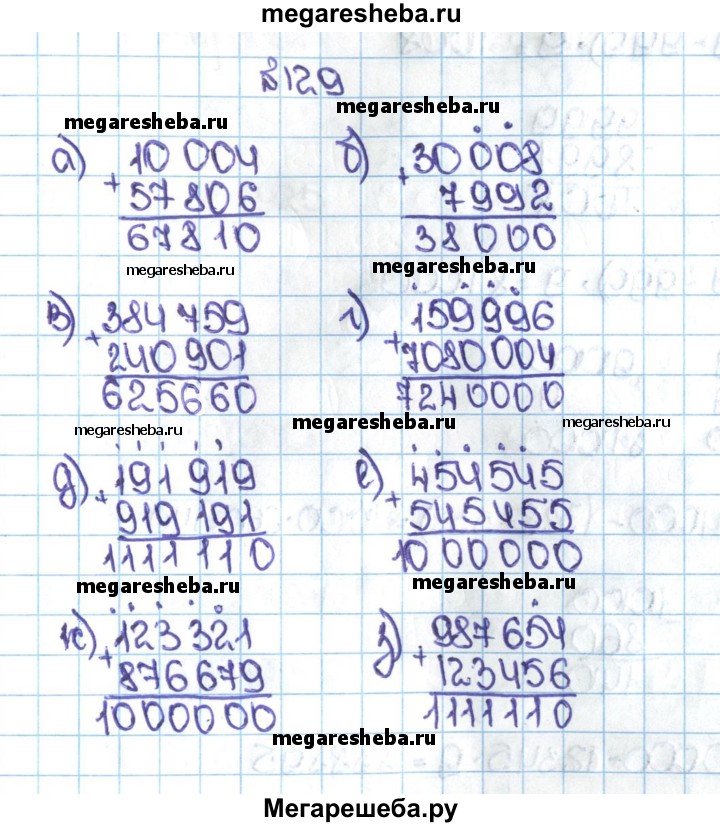 megaresheba.ru
№129
megaresheba.ru
megaresheba.ru
а) 10 004
+ 57 806
67810
б) 30008
+ 7992
38000
megaresheba.ru
megaresheba.ru
в) 384 759
+ 240 901
625660
г) 159996
+ 7080004
7240000
megaresheba.ru
megaresheba.ru
megaresheba.ru
д) 191 919
+ 919 191
1111110
е) 454545
+ 545455
1000000
megaresheba.ru
megaresheba.ru
ж) 123 321
+ 876679
1000000
з) 987654
+ 123456
1111110
megaresheba.ru
Мегарешеба.ру